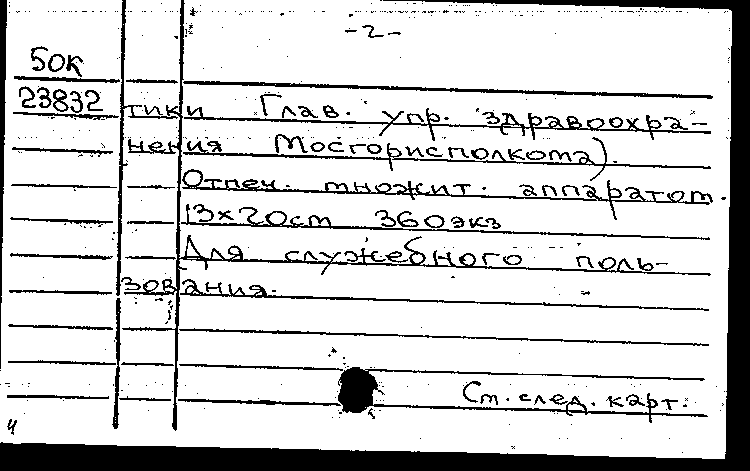 -2-
50К
23832 тики Глав. упр. здравоохра-
нения Мосгорисполкома).
Отпеч. множит. аппаратом.
13×20см 360экз
Для служебного поль-
зования.
См. след. карт.
4